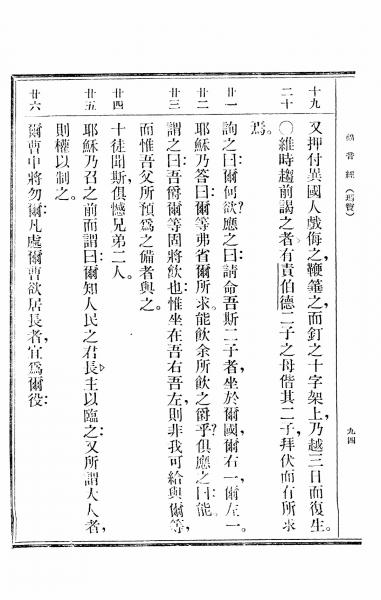 福音經(瑪竇)
九四
十九 又押付異國人戲侮之,鞭箠之而釘之十字架上,乃越三日而復生。
二十 〇維時趨前謁之者有責伯德二子之母偕其二子,拜伏而有所求
焉。
廿一 詢之曰爾何欲?應之曰:請命吾斯二子者,坐於爾國,爾右一,爾左一。
廿二 耶穌乃答曰:爾等弗省爾所求。能飲余所飲之爵乎?俱應之曰:能。
廿三 謂之曰:吾爵爾等固將飲也;惟坐在吾右吾左,則非我可給與爾等,
而惟吾父所預爲之備者與之。
廿四 十徒聞斯,俱憾兄弟二人。
廿五 耶穌乃召之前而謂曰:爾知人民之君長,主以臨之;又所謂大人者,
則權以制之。
廿六 爾曹中將勿爾:凡處爾曹欲居長者,宜爲爾役: